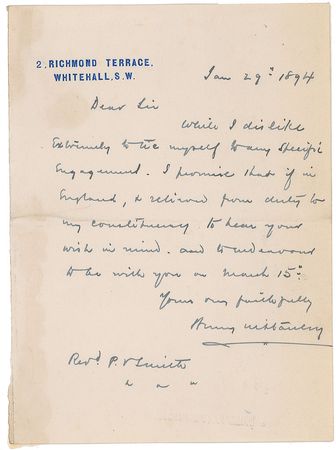 2, RICHMOND TERRACE,
WHITEHALL, S.W.
Jan 29th 1894
Dear Sir
While I dislike
Extremely to tie myself to any specific
Engagement. I promise that if in
England, & relieved from duty to
my constituency to bear your
wish in mind. and to endeavour
to be with you on March 15th
Yours very faithfully
Henry M Stanley
Revd P. V Smith